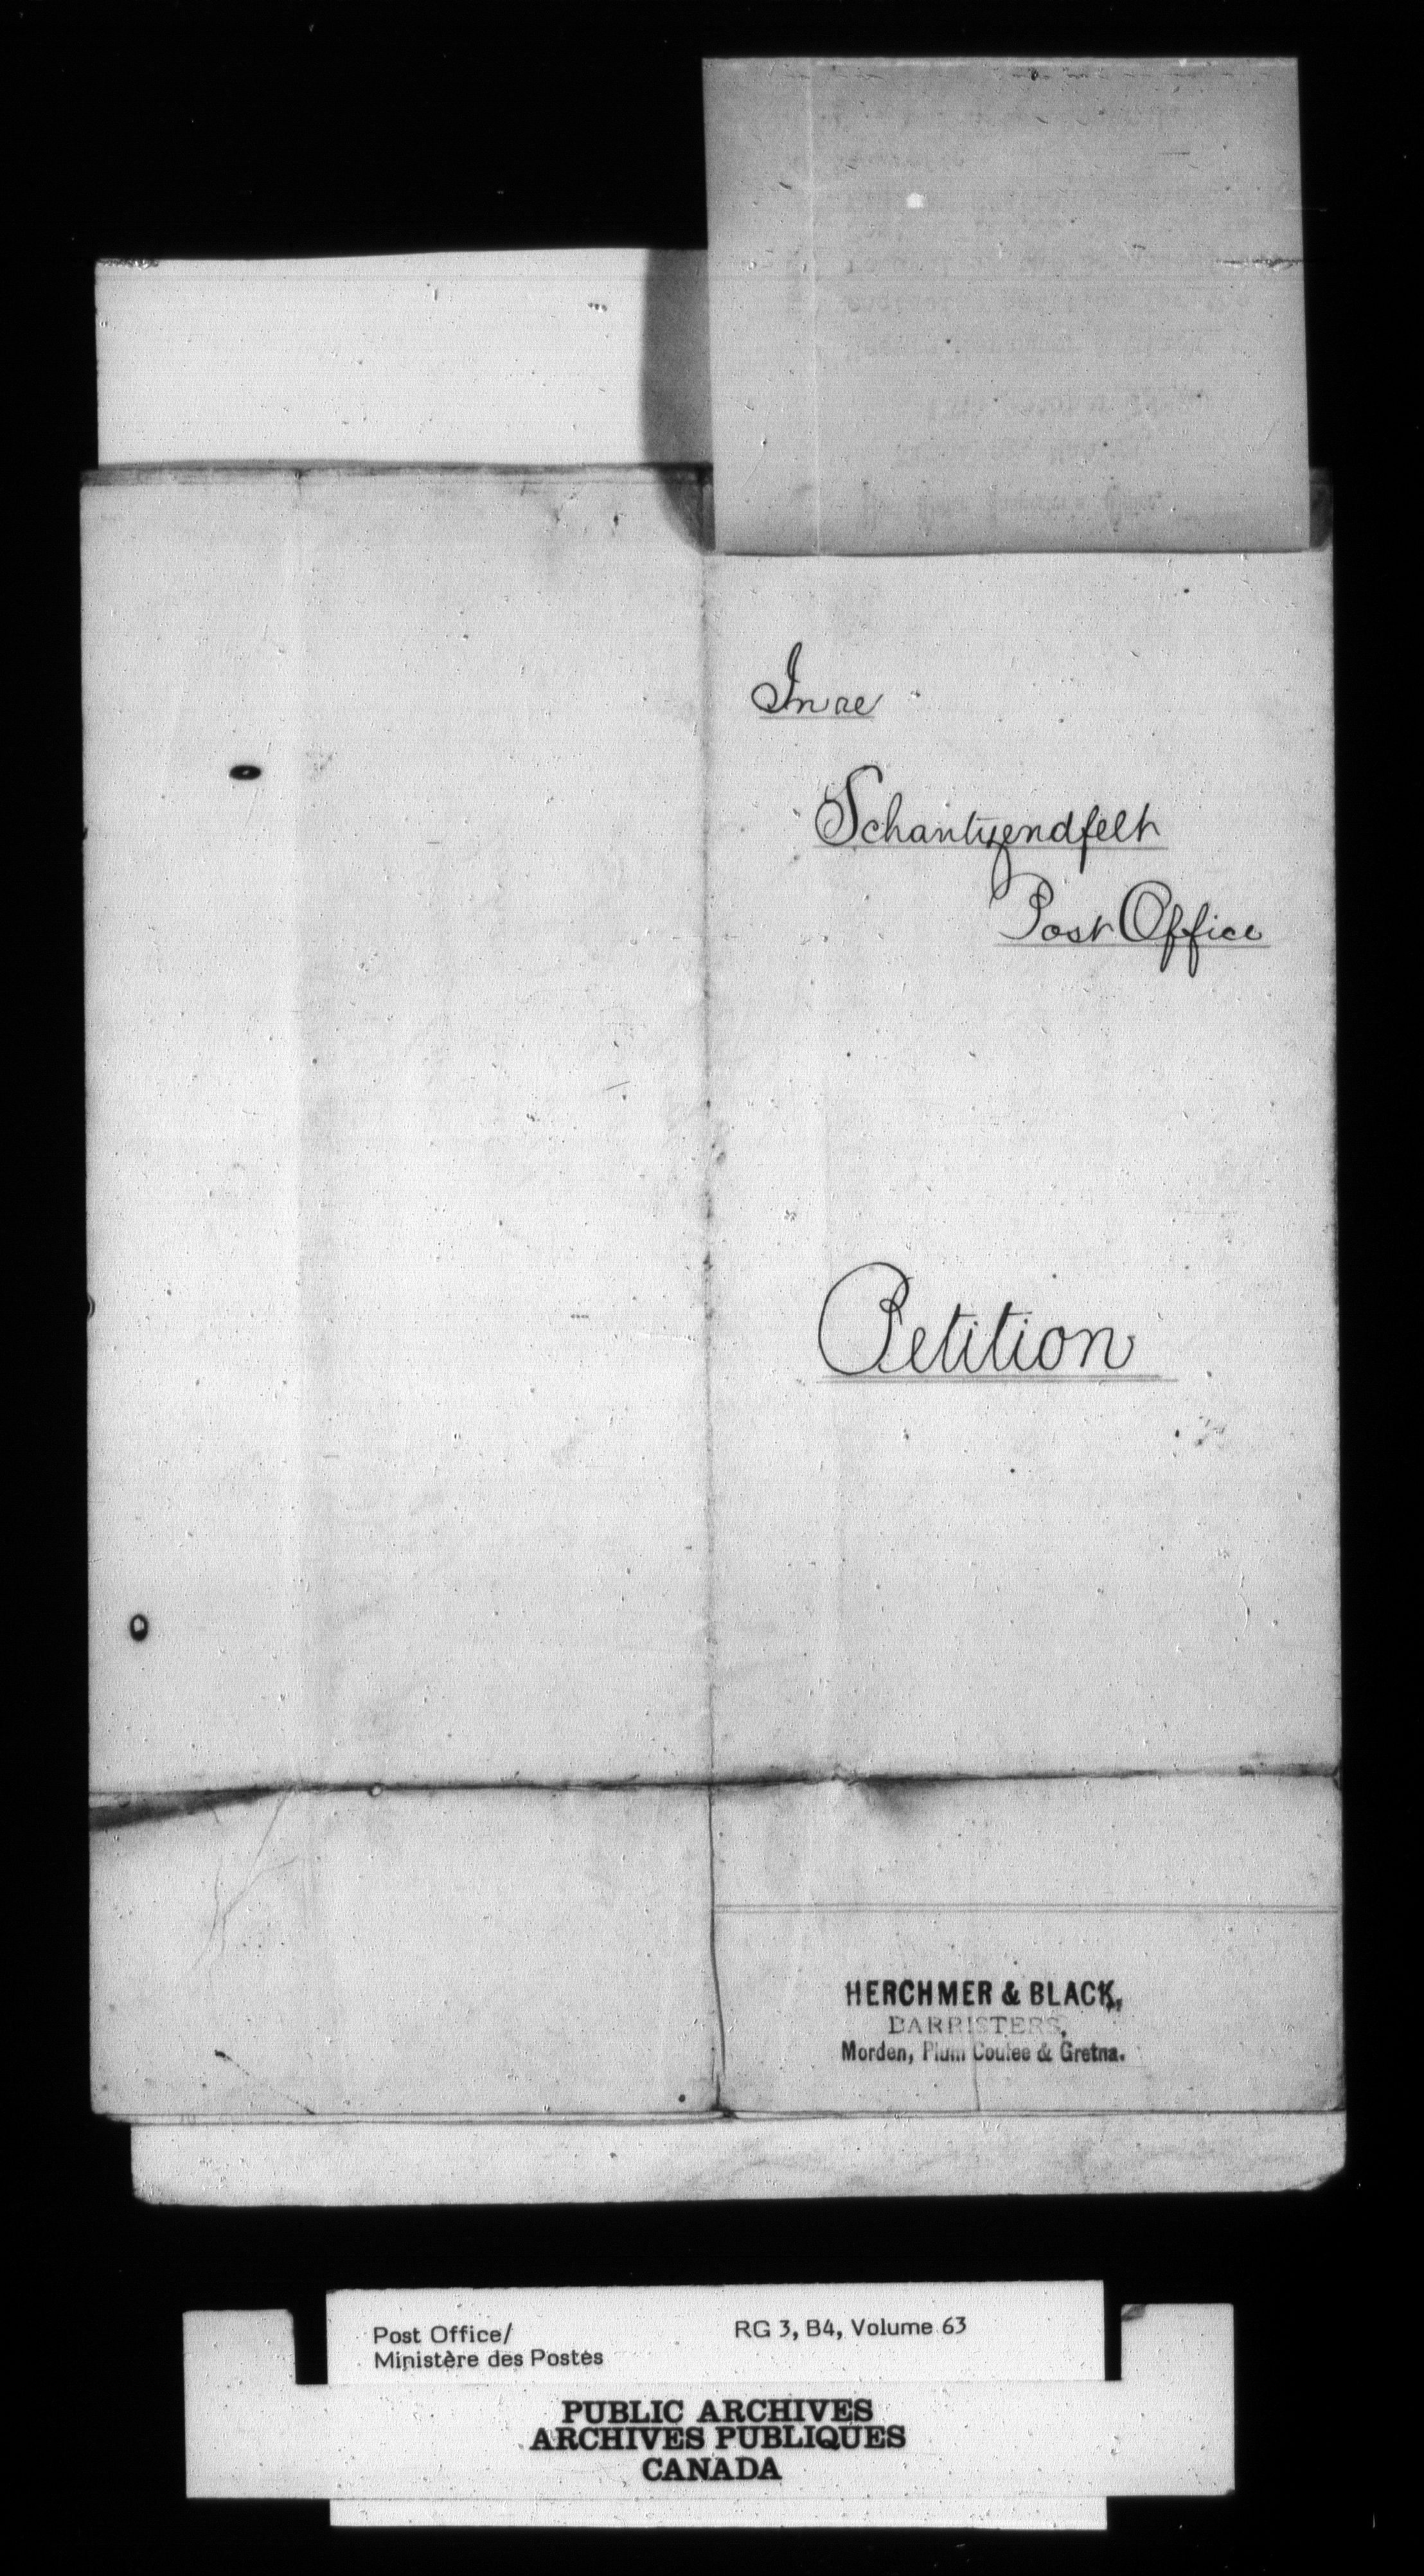 In re
Schantzendfelt
Post Office
Petition
HERCHMER & BLACK,
BARRISTERS,
Morden, Plum Coulee & Gretna.
Post Office/
Ministère des Postes
RG 3, B4, Volume 63
PUBLIC ARCHIVES
ARCHIVES PUBLIQUES
CANADA